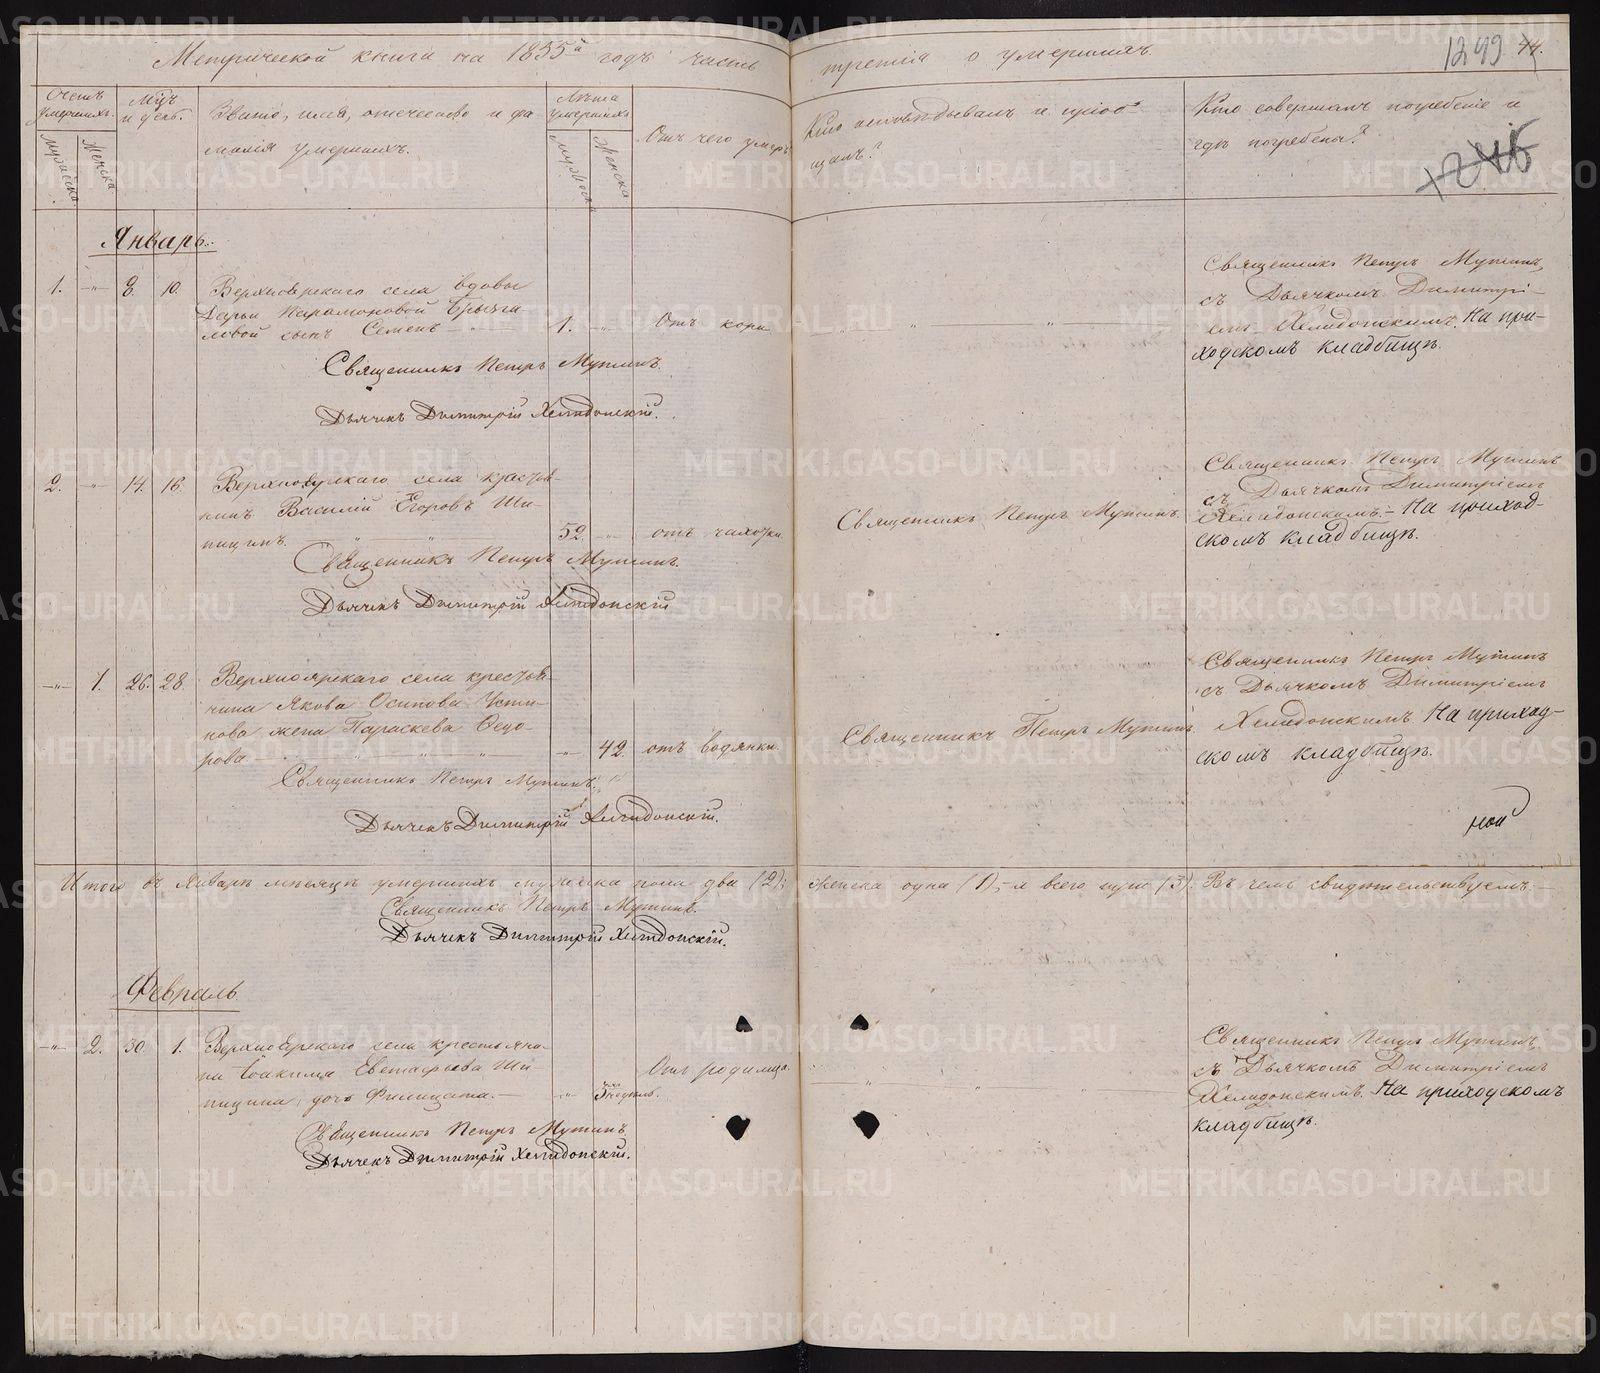 Метрической книги на 1855й годъ часть третія о умершихъ
1249 44.
Счетъ умершихъ.
Мужеска.
Женска
Мцъ и день.
Званіе, имя, отечество и фа
милія умершихъ.
Лѣта умершихъ
Мужеска
Женска
Отъ чего умеръ
Кто исповѣдывалъ и пріоб
щалъ?
Кто совершалъ погребеніе и
гдѣ погребены?
Январь.
1. -"- 8. 10. Верхноярскаго села вдовы
Дарьи Парамоновой
ловой сынъ Семенъ 1. " Отъ кори " "
Священникъ Петръ Мутинъ
съ Дьячкомъ Димитрі-
емъ Хелидонскимъ. На при-
ходскомъ кладбищѣ.
Священникъ Петръ Мутинъ.
Дьячекъ Димитрій Хелидонскій.
2. -"- 14. 16. Верхноярскаго села крестья-
нинъ Василій Егоровъ Ши-
пицинъ. 52. -"- отъ чахотки Священникъ Петръ Мутинъ.
Священникъ Петръ Мутинъ
съ Дьячкомъ Димитріемъ
Хелидонскимъ. - На приход-
скомъ кладбищѣ.
Священникъ Петръ Мутинъ.
Дьячекъ Димитрій Хелидонскій
-"- 1. 26. 28. Верхноярскаго села крестья-
нина Якова Осипова Усти-
нова жена Параскева Ѳедо-
рова -"- 42. отъ водянки. Священникъ Петръ Мутинъ
Священникъ Петръ Мутинъ
съ Дьячкомъ Димитріемъ
Хелидонскимъ. На приход-
скомъ кладбищѣ.
Священникъ Петръ Мутинъ.
Дьячекъ Димитрій Хелидонскій.
Итого въ Январѣ мѣсяцѣ умершихъ мужеска пола два (2); женска одна (1), а всего три (3). Въ чемъ свидѣтельствуемъ: -
Священникъ Петръ Мутинъ.
Дьячекъ Димитрій Хелидонскій.
Февраль
-"- 2. 30. 1. Верхноярскаго села крестьяни-
на Іоакима Евстафьева Ши-
пицина дочь Филицата. - -"- 3 недѣль. Отъ родимца. " "
Священникъ Петръ Мутинъ
съ Дьячкомъ Димитріемъ
Хелидонскимъ. На приходскомъ
кладбищѣ.
Священникъ Петръ Мутинъ
Дьячекъ Димитрій Хелидонскій.
METRIKI.GASO-URAL.RU